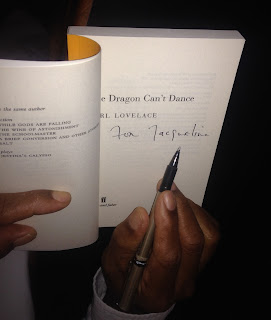 the same author
HILE GODS ARE FALLING
THE WINE OF ASTONISHMENT
HE SCHOOLMASTER
A BRIEF CONVERSION AND OTHER
SALT
e Dragon Can't Dance
RL LOVELACE
For Jacqueline
ff